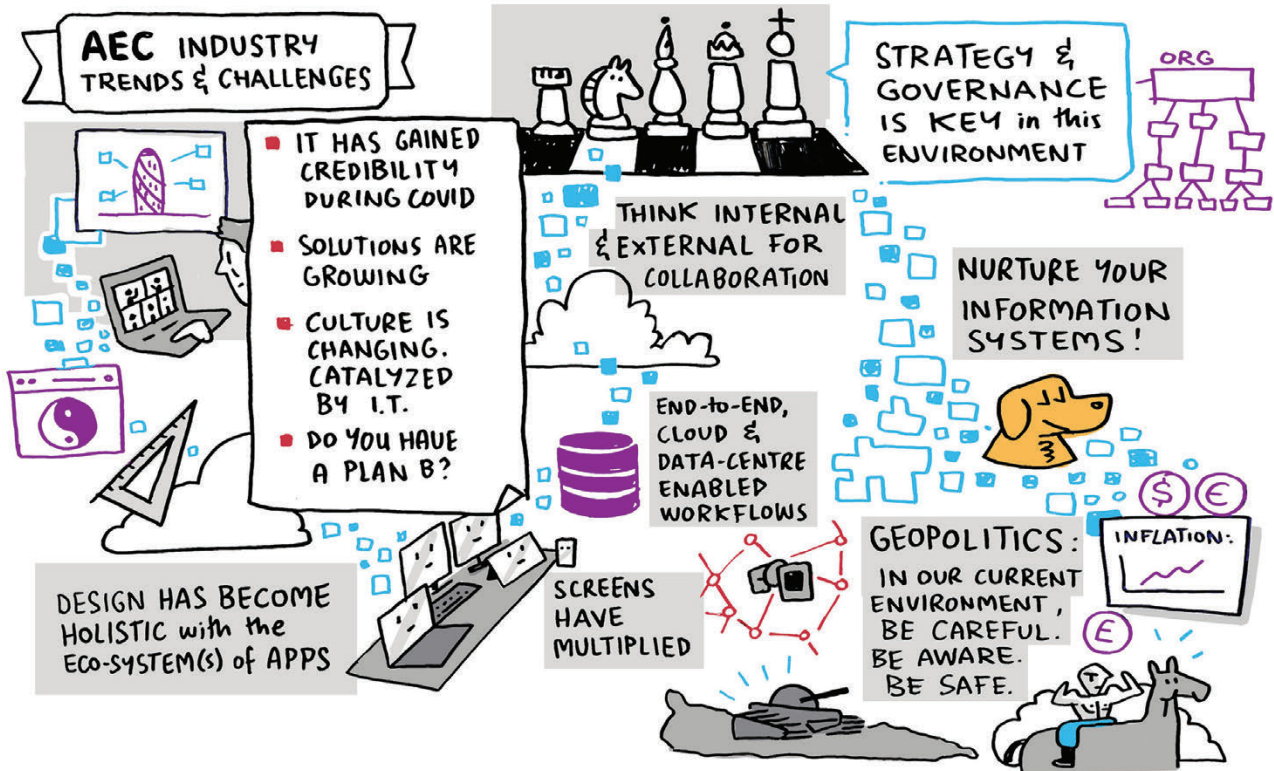 AEC INDUSTRY
TRENDS & CHALLENGES
IT HAS GAINED
CREDIBILITY
DURING COVID
SOLUTIONS ARE
GROWING
CULTURE IS
CHANGING.
CATALYZED
BY I.T.
DO YOU HAVE
A PLAN B?
STRATEGY &
GOVERNANCE
IS KEY in this
ENVIRONMENT
ORG
THINK INTERNAL
& EXTERNAL FOR
COLLABORATION
NURTURE YOUR
INFORMATION
SYSTEMS!
END-to-END,
CLOUD &
DATA-CENTRE
ENABLED
WORKFLOWS
DESIGN HAS BECOME
HOLISTIC with the
ECO-SYSTEM(S) of APPS
SCREENS
HAVE
MULTIPLIED
GEOPOLITICS:
IN OUR CURRENT
ENVIRONMENT,
BE CAREFUL.
BE AWARE.
BE SAFE.
$ €
INFLATION:
£